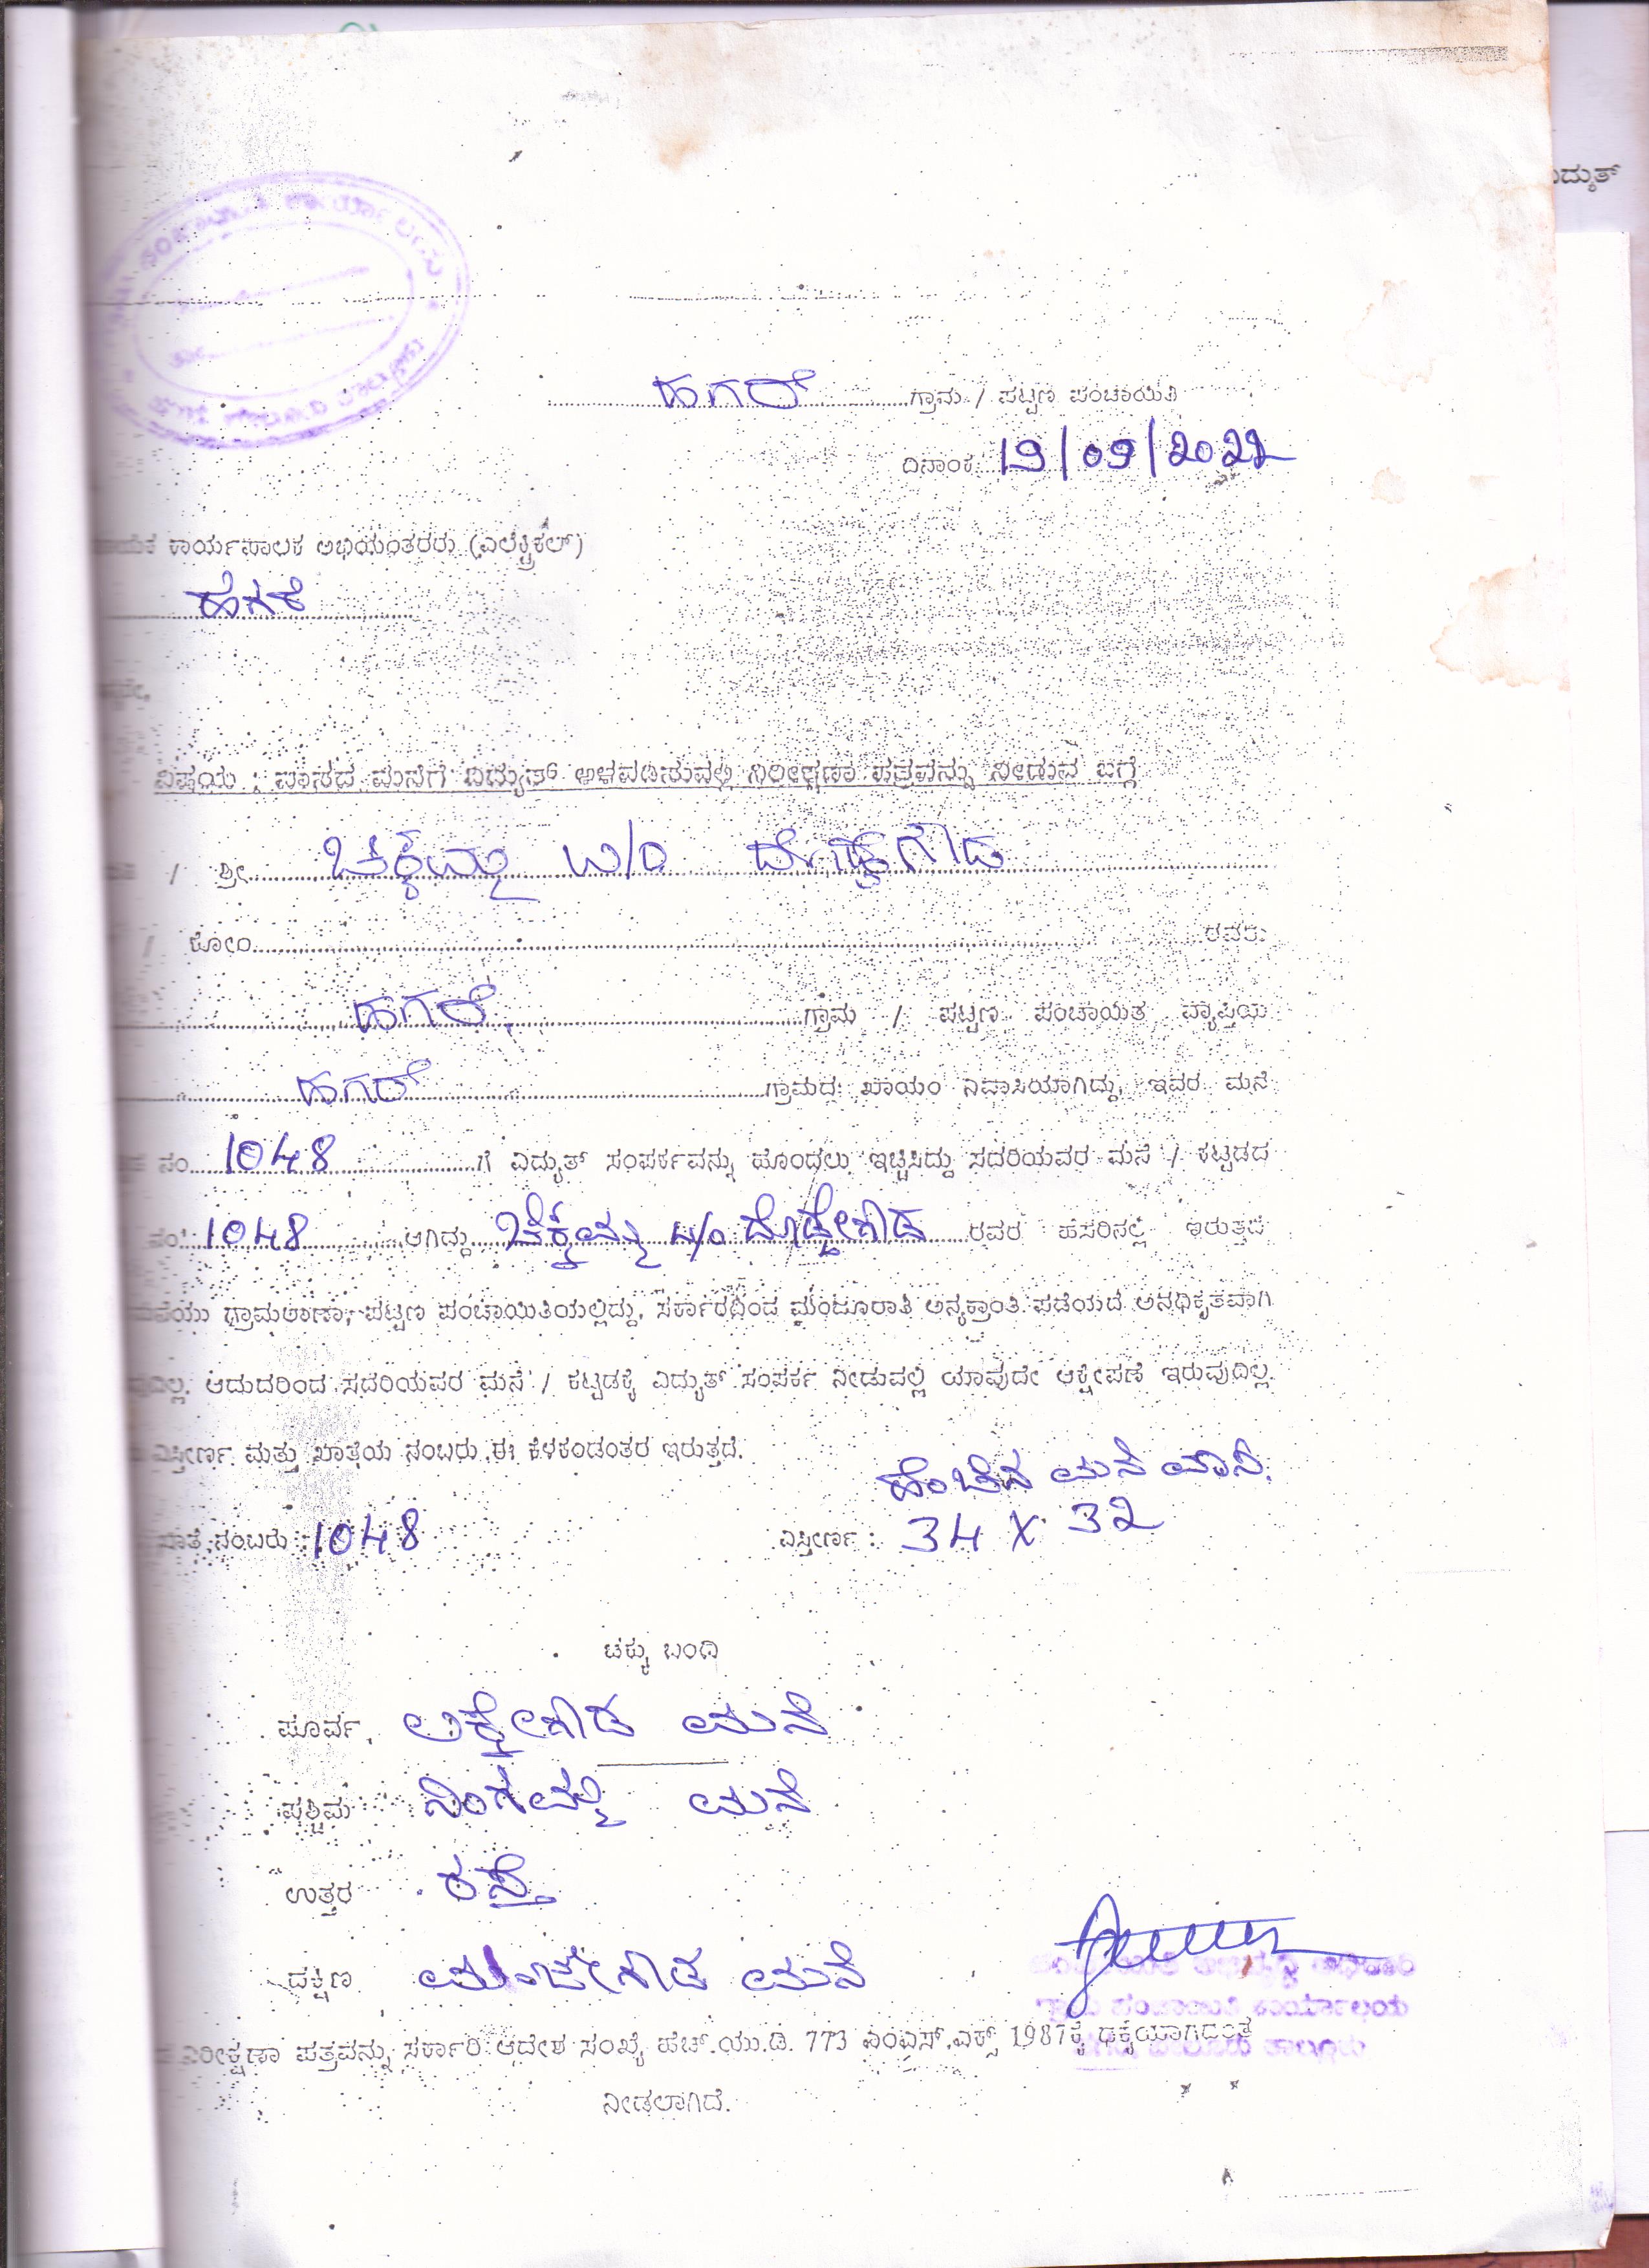 ದ್ಯುತ್
ಹಗರೆ ಗ್ರಾಮ / ಪಟ್ಟಣ ಪಂಚಾಯಿತಿ
ದಿನಾಂಕ 19/09/2022
ಕಾರ್ಯಪಾಲಕ ಅಭಿಯಂತರರು (ಎಲೆಕ್ಟ್ರಿಕಲ್)
ಹಗರೆ
ವಿಷಯ : ವಾಸದ ಮನೆಗೆ ವಿದ್ಯುತ್ ಅಳವಡಿಸುವಲ್ಲಿ ನಿರೀಕ್ಷಣಾ ಪತ್ರವನ್ನು ನೀಡುವ ಬಗ್ಗೆ
/ ಶ್ರೀ ಚಿಕ್ಕಮ್ಮ W/O ದೊಡ್ಡೇಗೌಡ
/ ಕೋಂ ರವರು
ಹಗರೆ ಗ್ರಾಮ / ಪಟ್ಟಣ ಪಂಚಾಯಿತಿ ವ್ಯಾಪ್ತಿಯ
ಹಗರೆ ಗ್ರಾಮದ ಖಾಯಂ ನಿವಾಸಿಯಾಗಿದ್ದು, ಇವರ ಮನೆ
ನಂ 1048 ಗೆ ವಿದ್ಯುತ್ ಸಂಪರ್ಕವನ್ನು ಹೊಂದಲು ಇಚ್ಛಿಸಿದ್ದು ಸದರಿಯವರ ಮನೆ / ಕಟ್ಟಡದ
ನಂ 1048 ಆಗಿದ್ದು ಚಿಕ್ಕಮ್ಮ W/O ದೊಡ್ಡೇಗೌಡ ರವರ ಹೆಸರಿನಲ್ಲಿ ಇರುತ್ತದೆ
ಗ್ರಾಮಠಾಣಾ, ಪಟ್ಟಣ ಪಂಚಾಯಿತಿಯಲ್ಲಿದ್ದು, ಸರ್ಕಾರದಿಂದ ಮಂಜೂರಾತಿ ಅನ್ಯಕ್ರಾಂತಿ ಪಡೆಯದೆ ಅನಧಿಕೃತವಾಗಿ
ಆದುದರಿಂದ ಸದರಿಯವರ ಮನೆ / ಕಟ್ಟಡಕ್ಕೆ ವಿದ್ಯುತ್ ಸಂಪರ್ಕ ನೀಡುವಲ್ಲಿ ಯಾವುದೇ ಆಕ್ಷೇಪಣೆ ಇರುವುದಿಲ್ಲ.
ವಿಸ್ತೀರ್ಣ ಮತ್ತು ಖಾತೆಯ ನಂಬರು ಈ ಕೆಳಕಂಡಂತರ ಇರುತ್ತದೆ.
ಹೆಂಚಿನ ಮನೆ ವಾಸ
ಖಾತೆ ನಂಬರು : 1048 ವಿಸ್ತೀರ್ಣ : 34 X 32
ಚಕ್ಕು ಬಂದಿ
ಪೂರ್ವ ಲಕ್ಕೇಗೌಡ ಮನೆ
ಪಶ್ಚಿಮ ನಿಂಗಮ್ಮ ಮನೆ
ಉತ್ತರ ರಸ್ತೆ
ದಕ್ಷಿಣ ಮಂಜೇಗೌಡ ಮನೆ
ಪಂಚಾಯಿತಿ ಕಾರ್ಯಾಲಯ
ನಿರೀಕ್ಷಣಾ ಪತ್ರವನ್ನು ಸರ್ಕಾರಿ ಆದೇಶ ಸಂಖ್ಯೆ ಹೆಚ್.ಯು.ಡಿ. 773 ಎಂಎಸ್.ಎಕ್ಸ್ 1987ಕ್ಕೆ
ನೀಡಲಾಗಿದೆ.